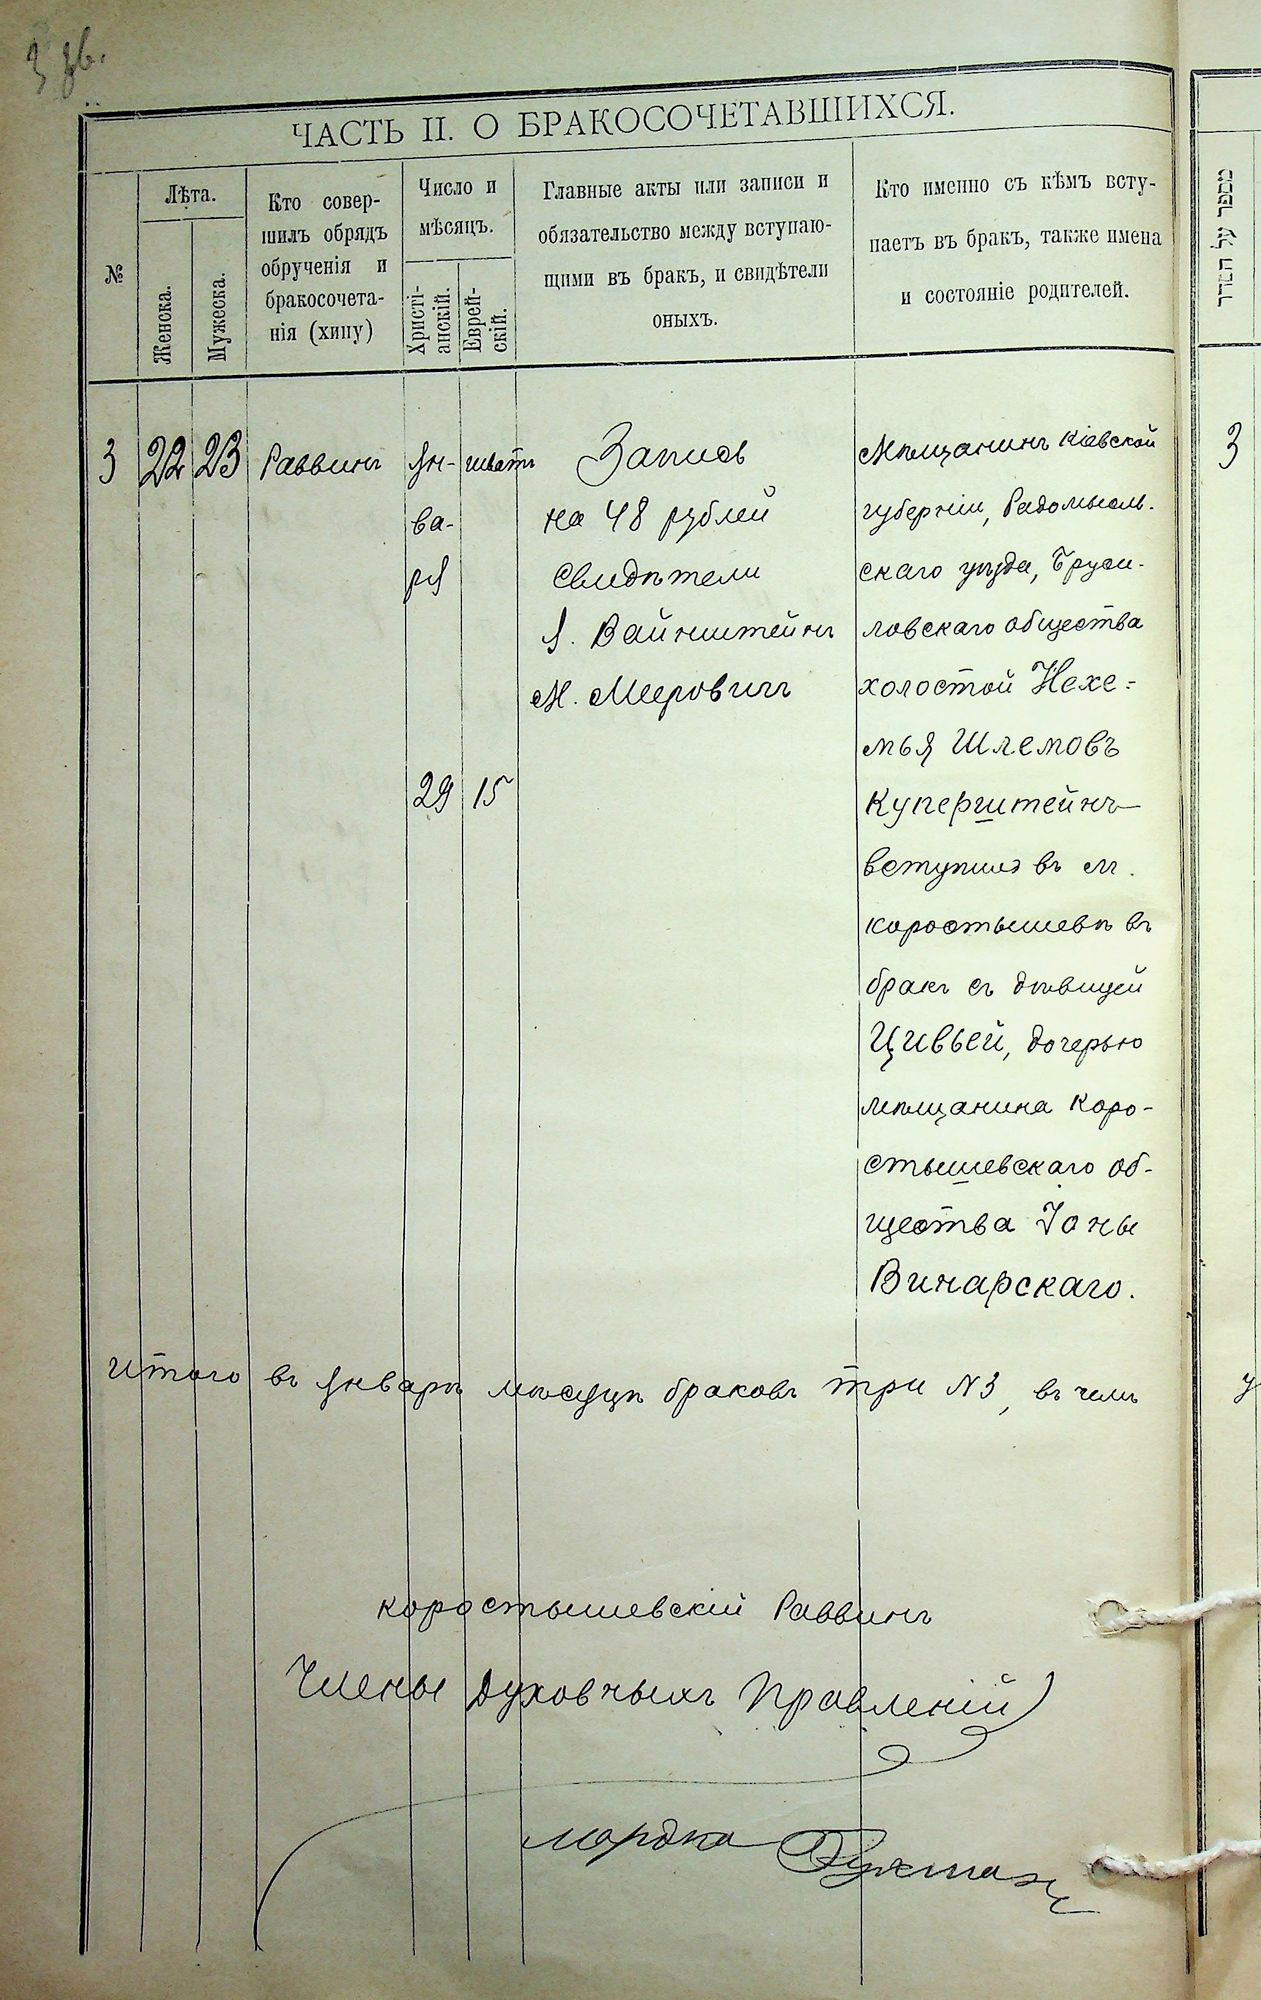 3 об.
ЧАСТЬ II. О БРАКОСОЧЕТАВШИХСЯ.
№
Лѣта.
Женска.
Мужеска.
Кто совер-
шилъ обрядъ
обрученія и
бракосочета-
нія (хипу)
Число и
мѣсяцъ.
Христі-
анскій.
Еврей-
скій.
Главные акты или записи и
обязательство между вступаю-
щими въ бракъ, и свидѣтели
оныхъ.
Кто именно съ кѣмъ всту-
паетъ въ бракъ, также имена
и состояніе родителей.
3
22
23
Раввинъ
Ян-
ва-
ря
29
шватъ
15
Запись
на 48 рублей
Свидѣтели
Я. Вайнштейнъ
М. Мееровичъ
Мѣщанинъ Кіевской
губерніи, Радомысль-
скаго уѣзда, Бруси-
ловскаго общества
холостой Нехе-
мья Шлемовъ
Куперштейнъ
вступилъ въ м.
Коростышевѣ въ
бракъ съ дѣвицей
Цивьей, дочерью
мѣщанина Коро-
стышевскаго об-
щества Іоны
Винарскаго.
Итого въ Январѣ мѣсяцѣ браковъ три №3, въ чемъ
Коростышевскій Раввинъ
Члены Духовныхъ Правленій
Мордко
מספר על הסדר
3